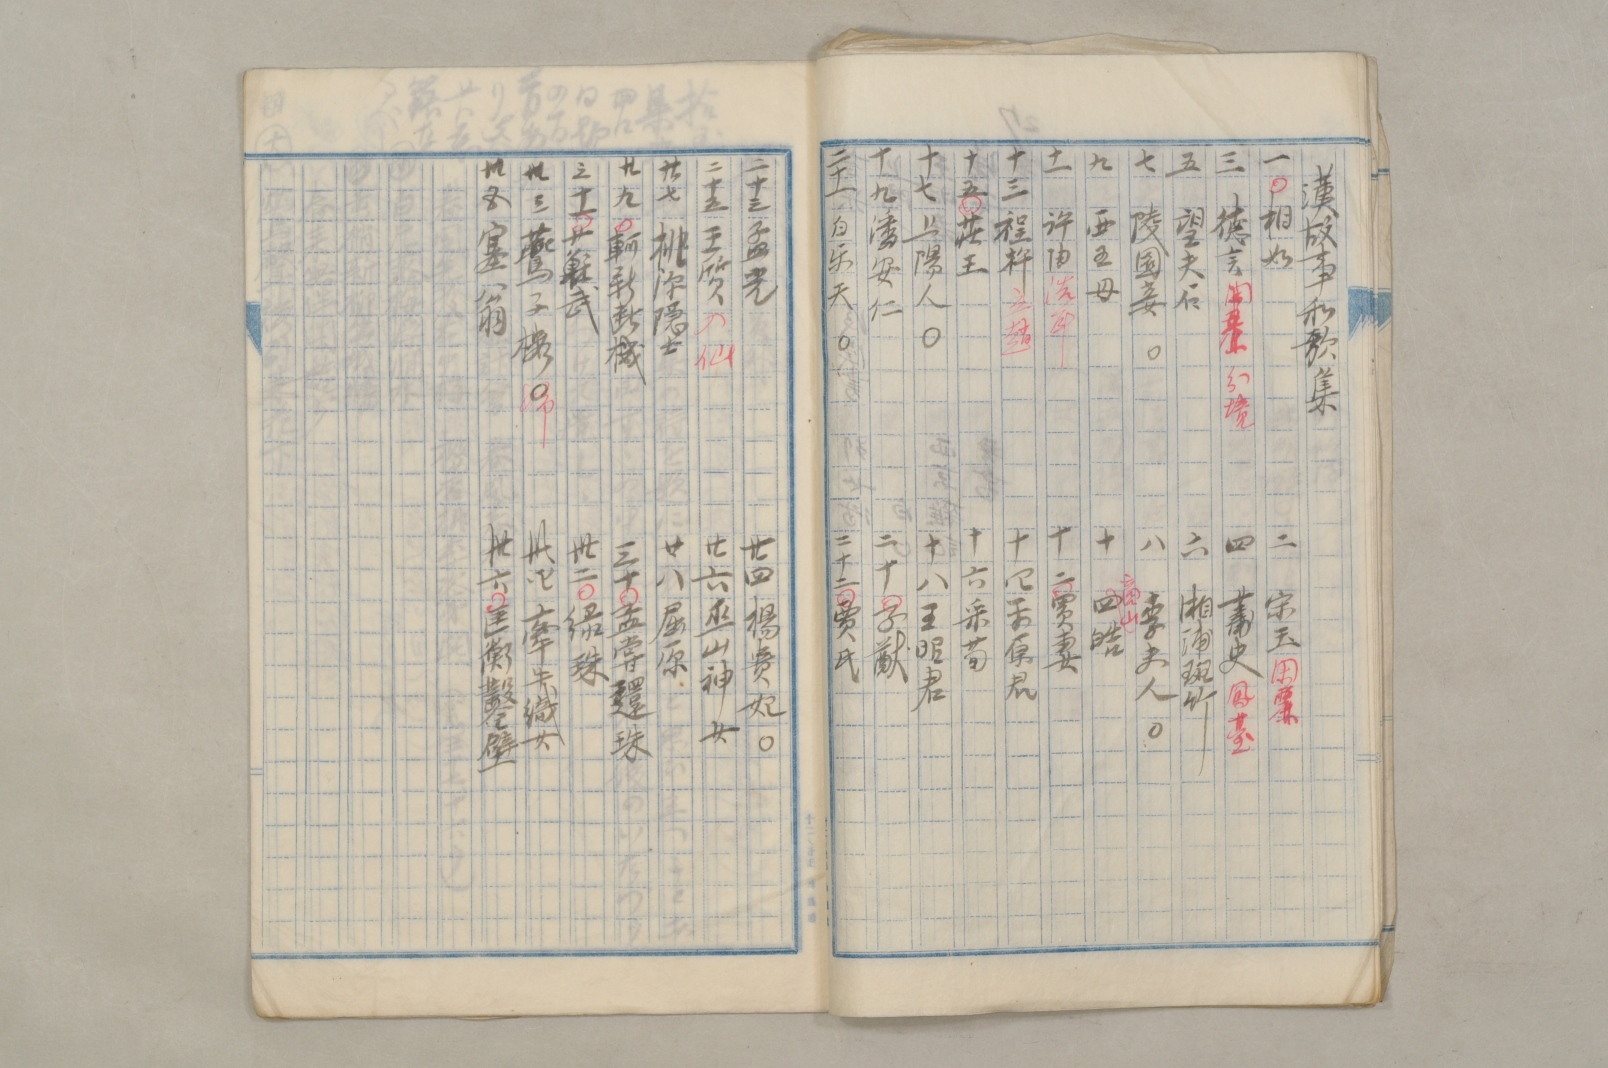 漢故事和歌集
一〇相如
二 宋玉
三 徳言 分境
四 蕭史 鳳臺
五 望夫石
六 湘浦斑竹
七 陵園妾 〇
八 李夫人 〇
九 西王母
十 四皓 商山
十一 许由 洗耳
十二 買妻
十三 程杵 立趙
十五〇荘王
十六 采菊
十七 上陽人 〇
十八 王昭君
十九 潘安仁
二十〇子猷
二十一 白乐天 〇
二十二〇賈氏
二十三 孟光
廿四 楊貴妃 〇
二十五 王質 仙
廿六 巫山神女
廿七 桃源隠士
廿八 屈原
廿九〇
三十〇孟甞還珠
三十一〇蘇武
卅二〇緑珠
卅三 燕子楼 〇
卅四 牽牛織女
卅五 塞翁
卅六〇匡衡鑿壁